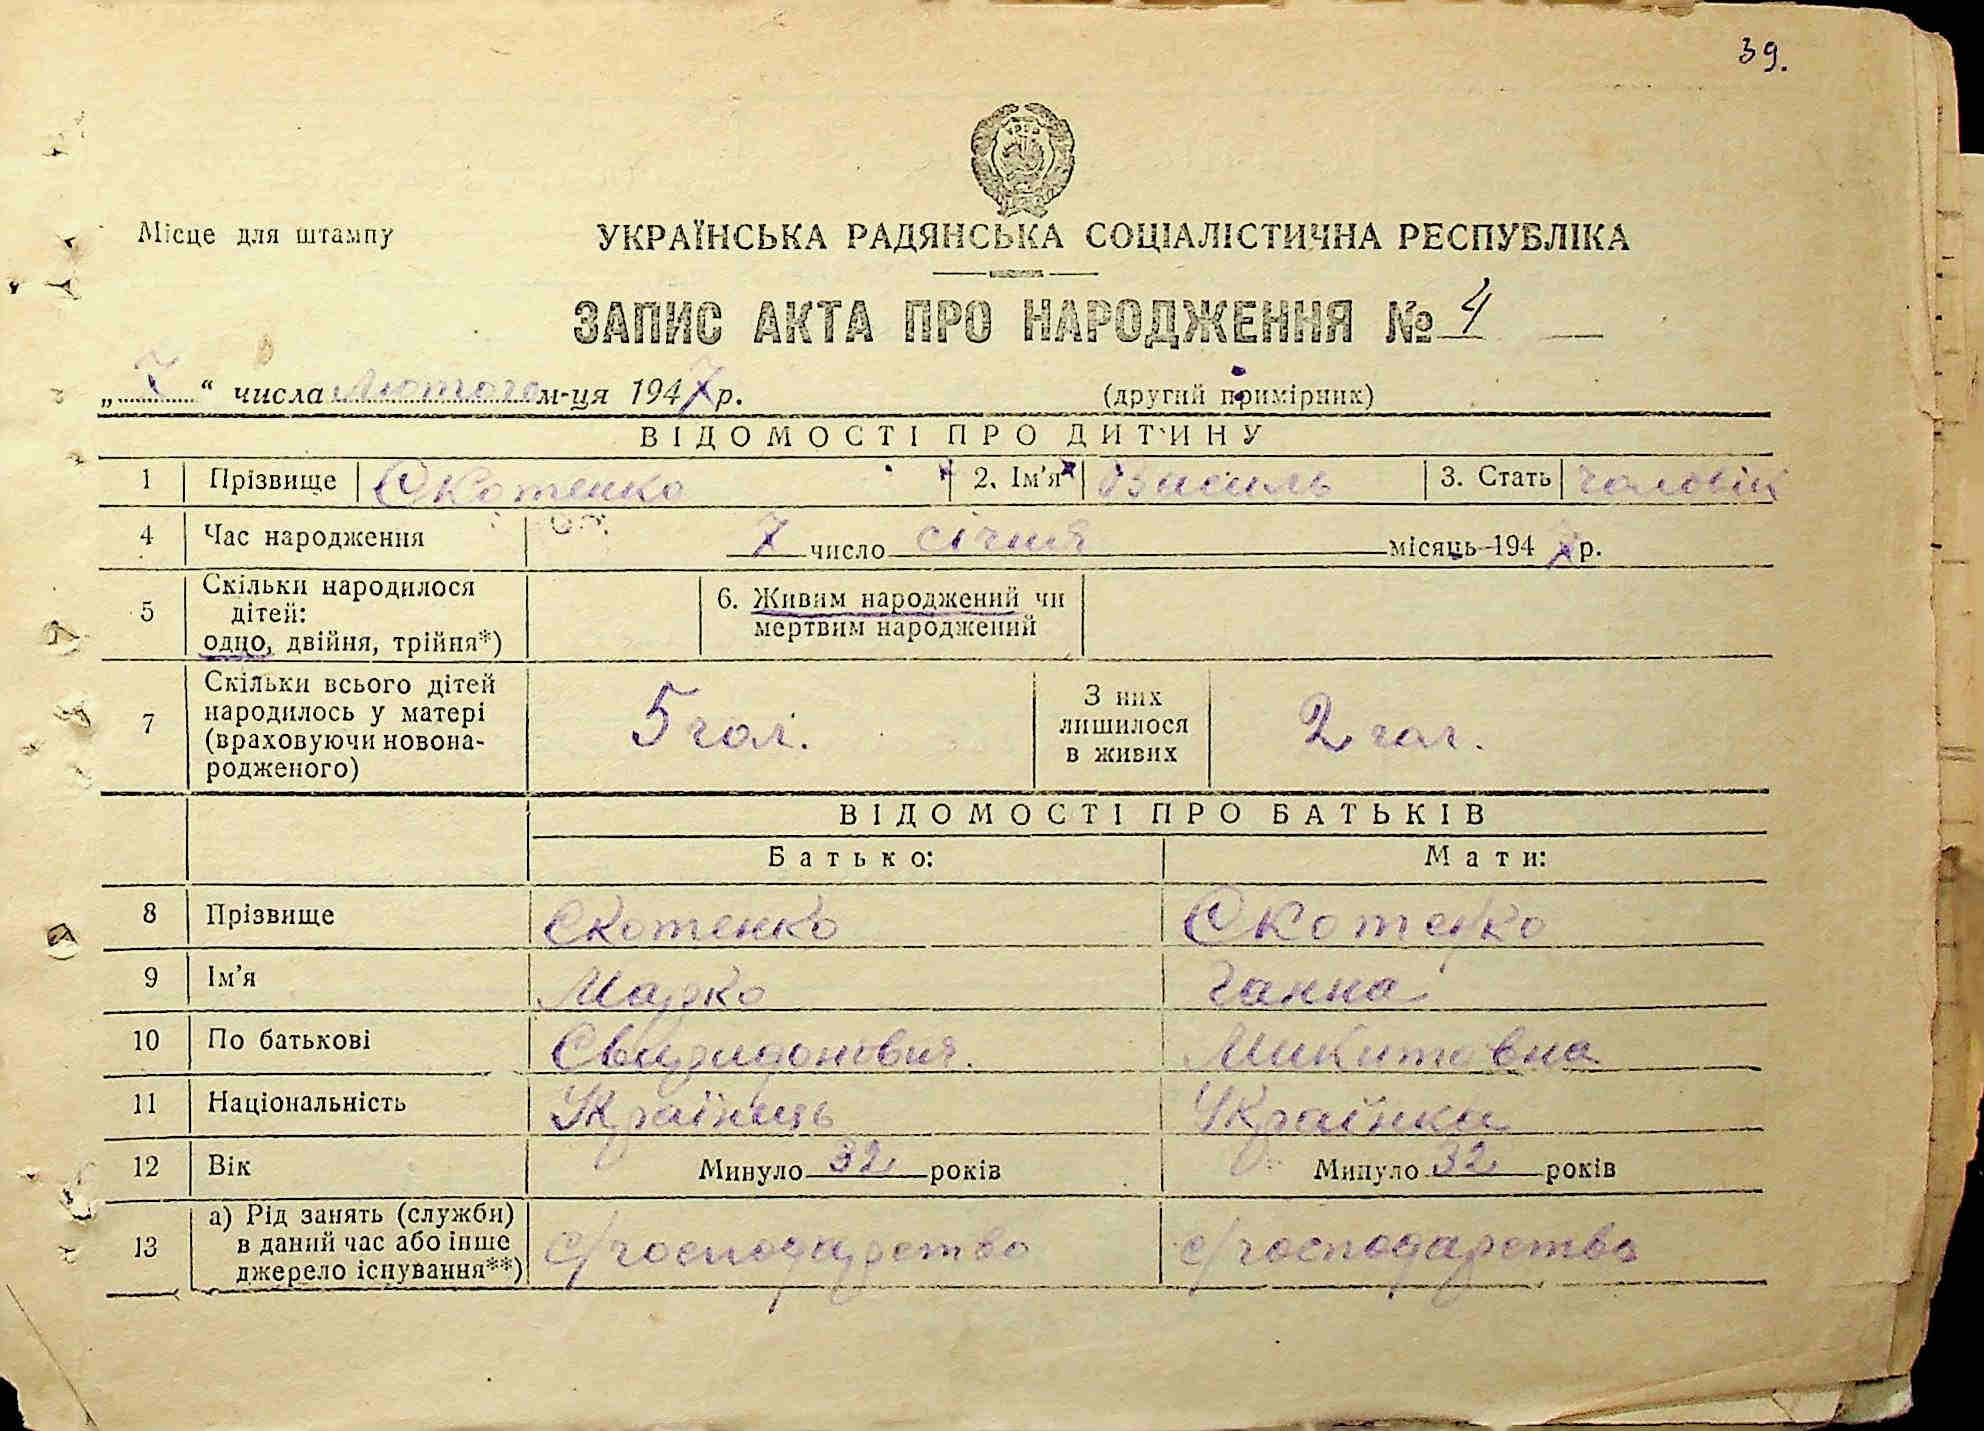 39.
Місце для штампу
УКРАЇНСЬКА РАДЯНСЬКА СОЦІАЛІСТИЧНА РЕСПУБЛІКА
ЗАПИС АКТА ПРО НАРОДЖЕННЯ № 4
„7“ числа Лютого м-ця 1947 р. (другий примірник)
ВІДОМОСТІ ПРО ДИТИНУ
1 Прізвище Скотенко 2. Ім'я Василь 3. Стать чоловік
4 Час народження 7 число січня місяць 1947 р.
5 Скільки народилося дітей: одно, двійня, трійня*) 6. Живим народжений чи мертвим народжений
7 Скільки всього дітей народилось у матері (враховуючи новонародженого) 5 чол. З них лишилося в живих 2 чол.
ВІДОМОСТІ ПРО БАТЬКІВ
Батько: Мати:
8 Прізвище Скотенко Скотенко
9 Ім'я Марко Ганна
10 По батькові Свиридонович Микитовна
11 Національність Українець Українка
12 Вік Минуло 32 років Минуло 32 років
13 а) Рід занять (служби) в даний час або інше джерело існування**) с/господарство с/господарство